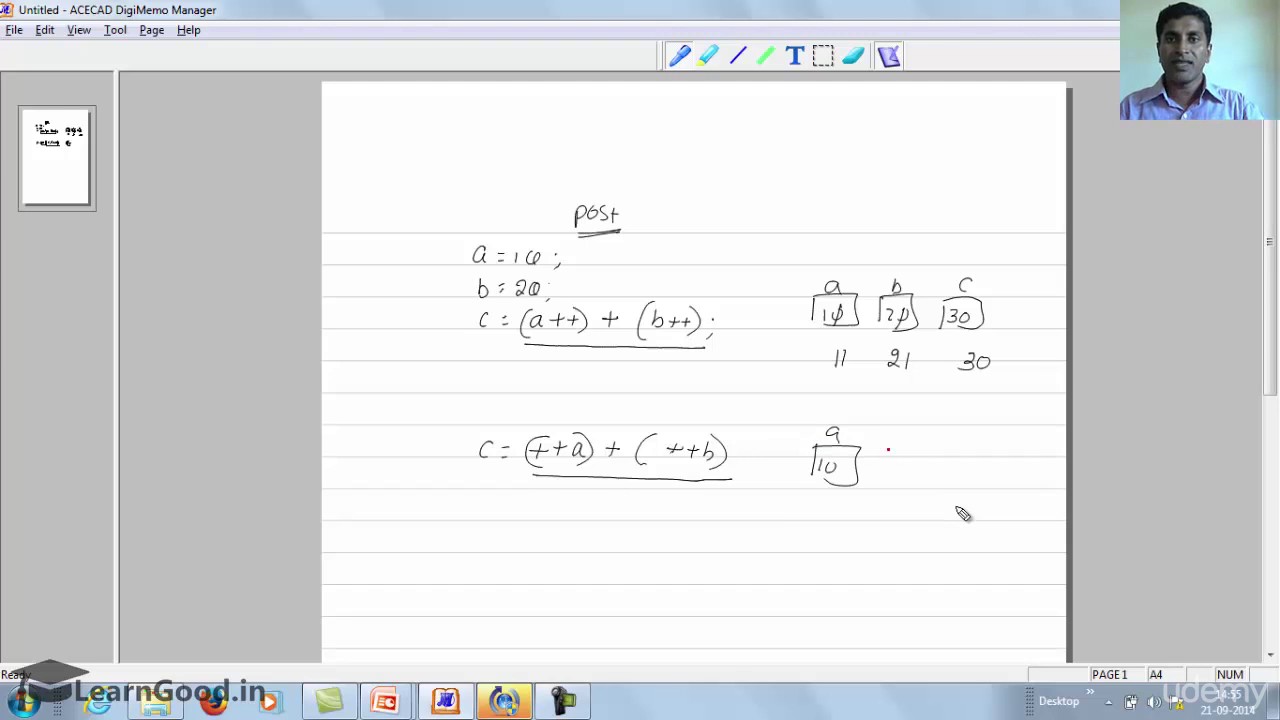 Untitled - ACECAD DigiMemo Manager
File Edit View Tool Page Help
post
a = 10 ;
b = 20 ;
c = (a++) + (b++) ;
a b c
10 20 30
11 21 30
c = (++a) + ( ++b)
a
10
Ready
PAGE 1 A4 NUM
LearnGood.in
Desktop
14:55
21-09-2014
udemy